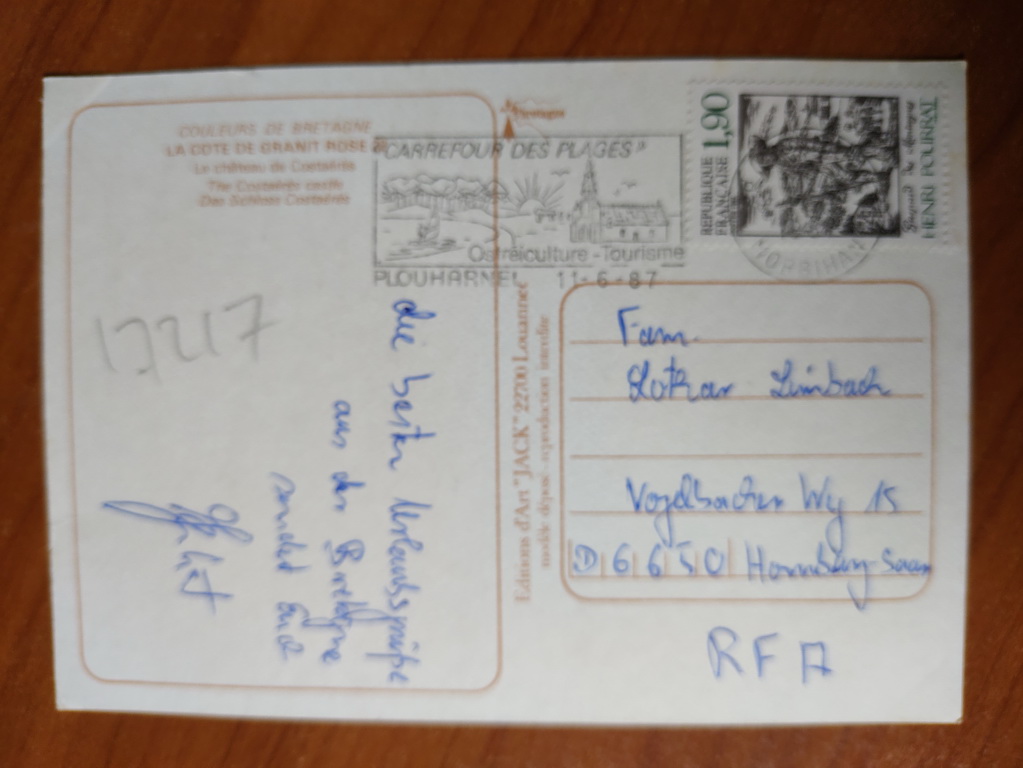 COULEURS DE BRETAGNE
LA COTE DE GRANIT ROSE
Le château de Costaérès
The Costaérès castle
Das Schloss Costaérès
"CARREFOUR DES PLAGES"
Ostréiculture - Tourisme
PLOUHARNEL 11-6-87
MORBIHAN
REPUBLIQUE
FRANÇAISE 1,90
HENRI POURRAT
17217
die besten Urlaubsgrüße
aus der Bretagne
sendet Euch
Editions d'Art "JACK" 22700 Louannec
modèle déposé - reproduction interdite
Fam.
Lothar Limbach
Vogelbacher Weg 15
D 6650 Homburg-Saar
RFA